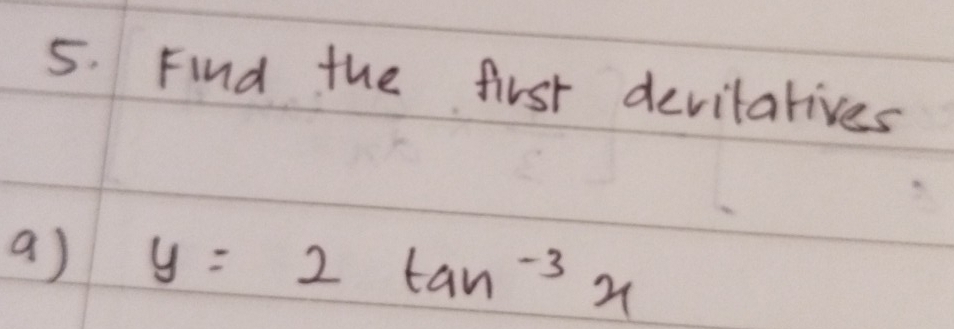 5. Find the first devitatives
a) y = 2 tan⁻³ x